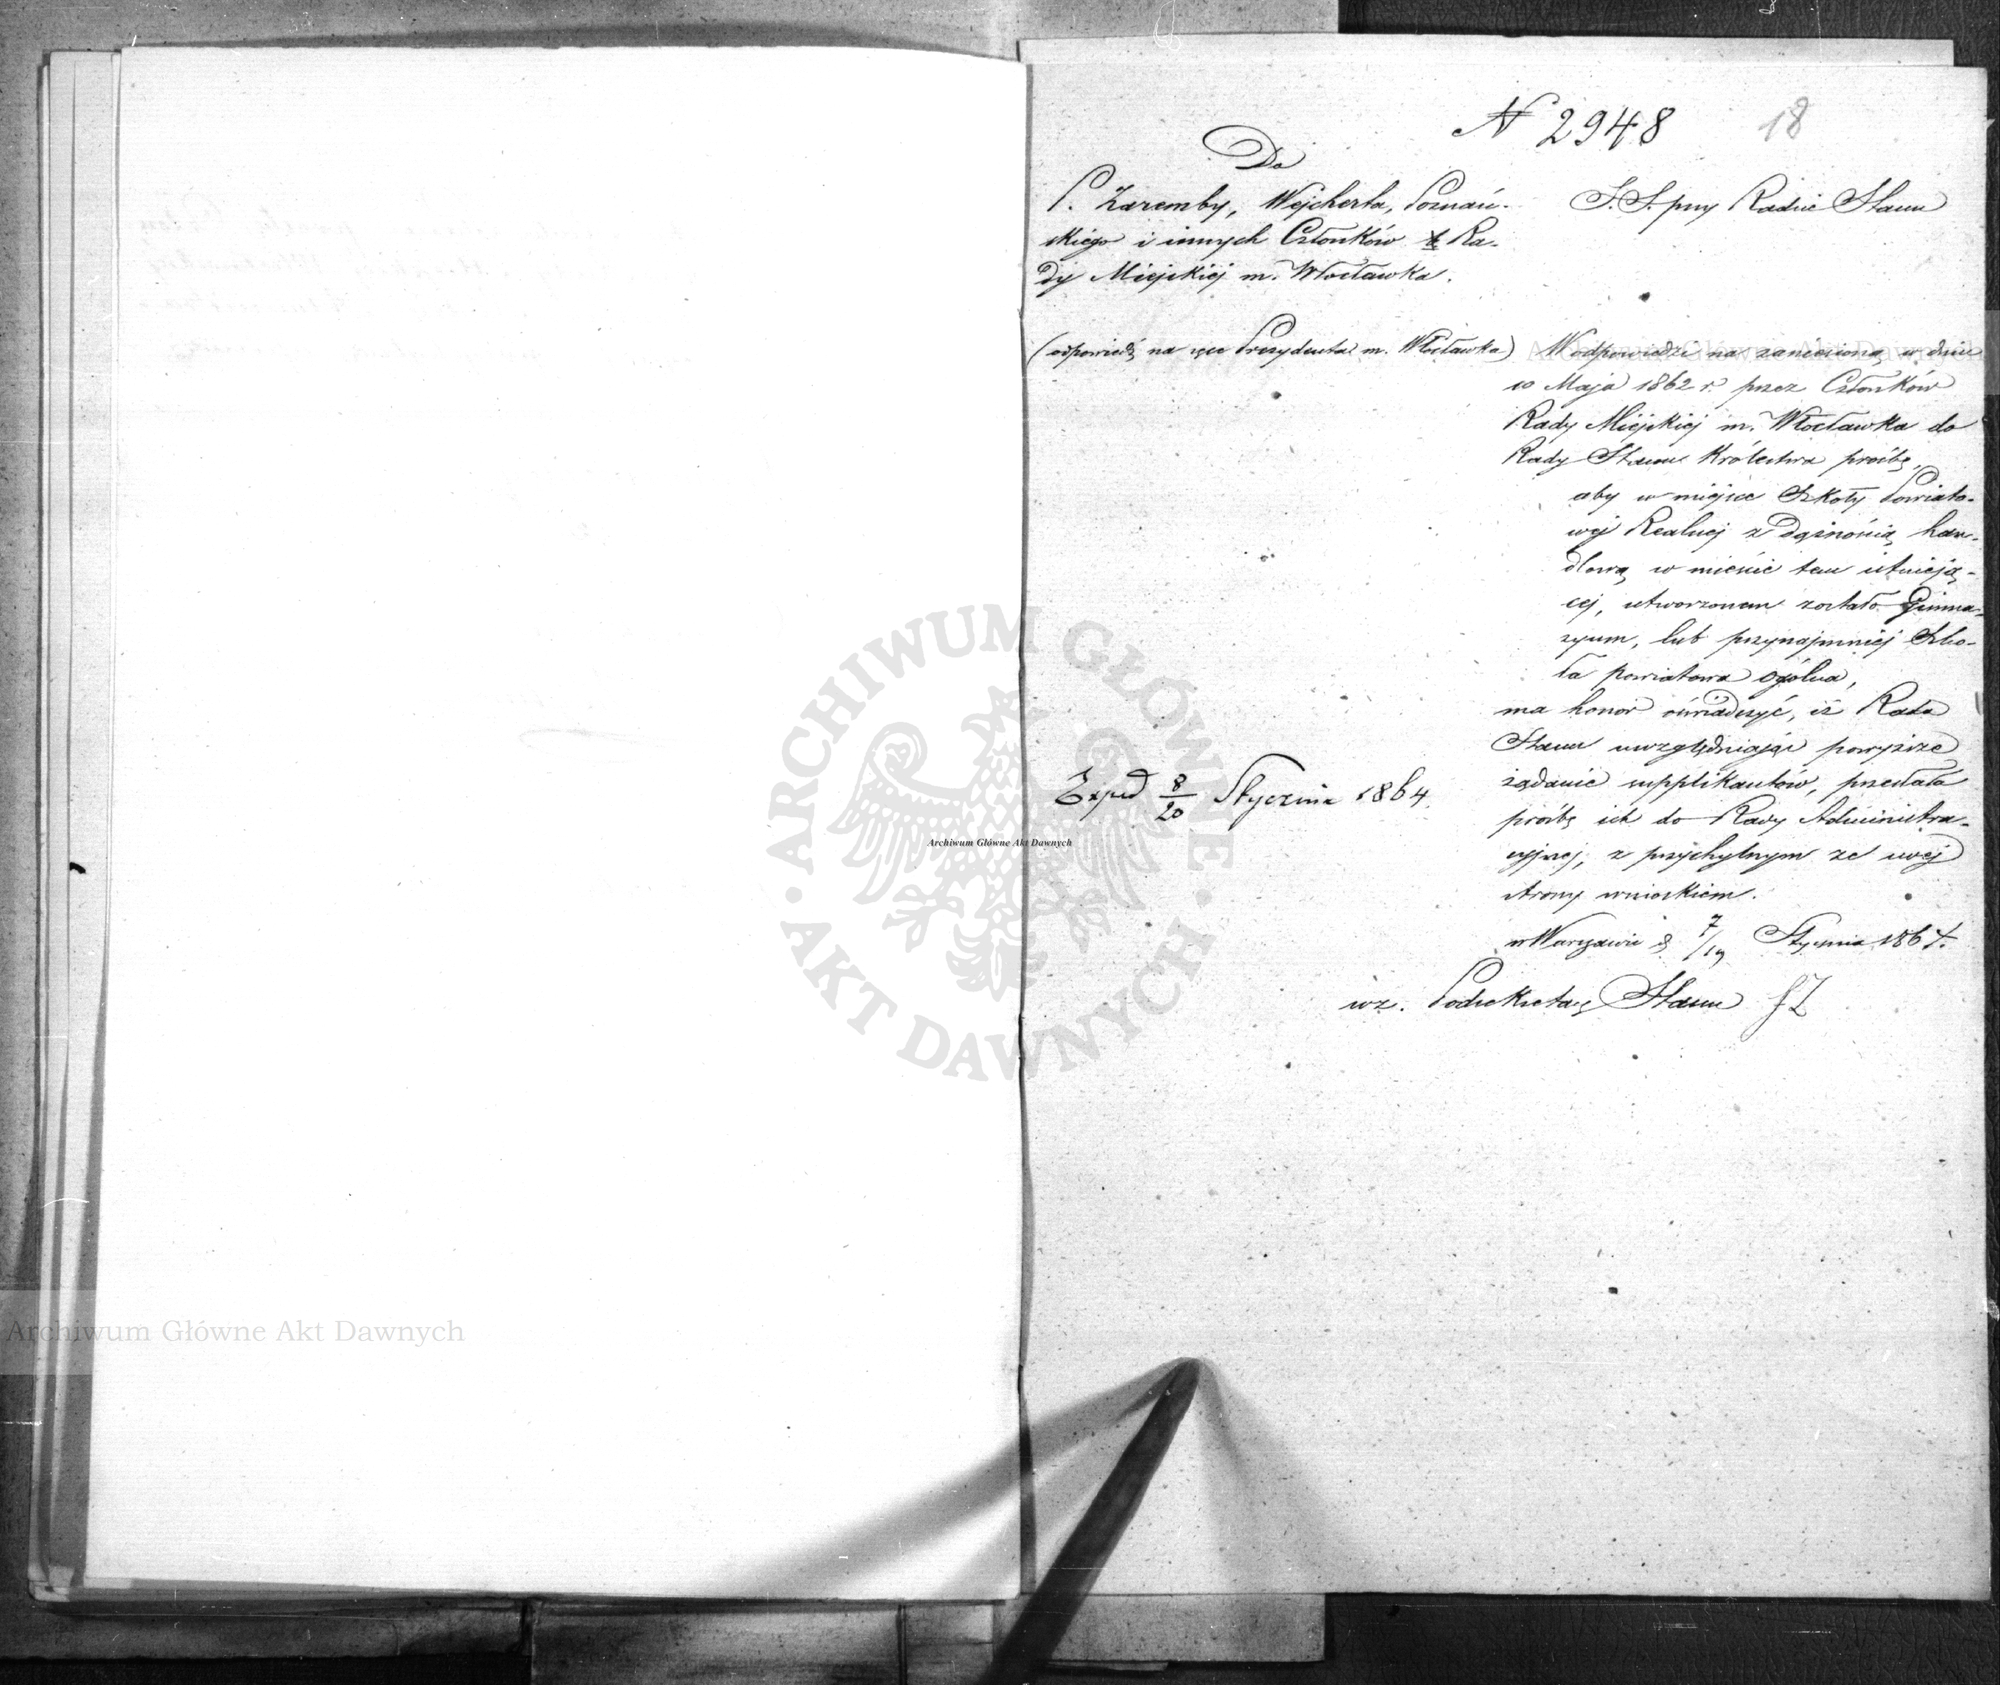 N 2948
18
Do
P. Zaremby, Wejcherta, Poznań-
skiego i innych Członków Ra-
dy Miejskiej m. Włocławka.
S. S. przy Radzie Stanu
(odpowiedź na ręce Prezydenta m. Włocławka)
W odpowiedzi na zaniesioną w dniu
10 Maja 1862 r. przez Członków
Rady Miejskiej m. Włocławka do
Rady Stanu Królestwa prośbę,
aby w miejsce Szkoły Powiato-
wej Realnej z dążnością han-
dlową w mieście tem istnieją-
cej, utworzonem zostało Gimna-
zyum, lub przynajmniej Szko-
ła powiatowa ogólna,
ma honor oświadczyć, iż Rada
Stanu uwzględniając powyższe
żądanie supplikantów, przesłała
prośbę ich do Rady Administra-
cyjnej, z przychylnym ze swej
strony wnioskiem.
w Warszawie d. 7/19 Stycznia 1864.
Exped 8/20 Stycznia 1864.
wz. Podsekretarz Stanu
Archiwum Główne Akt Dawnych
ARCHIWUM GŁÓWNE
AKT DAWNYCH
Archiwum Główne Akt Dawnych
Archiwum Główne Akt Dawnych